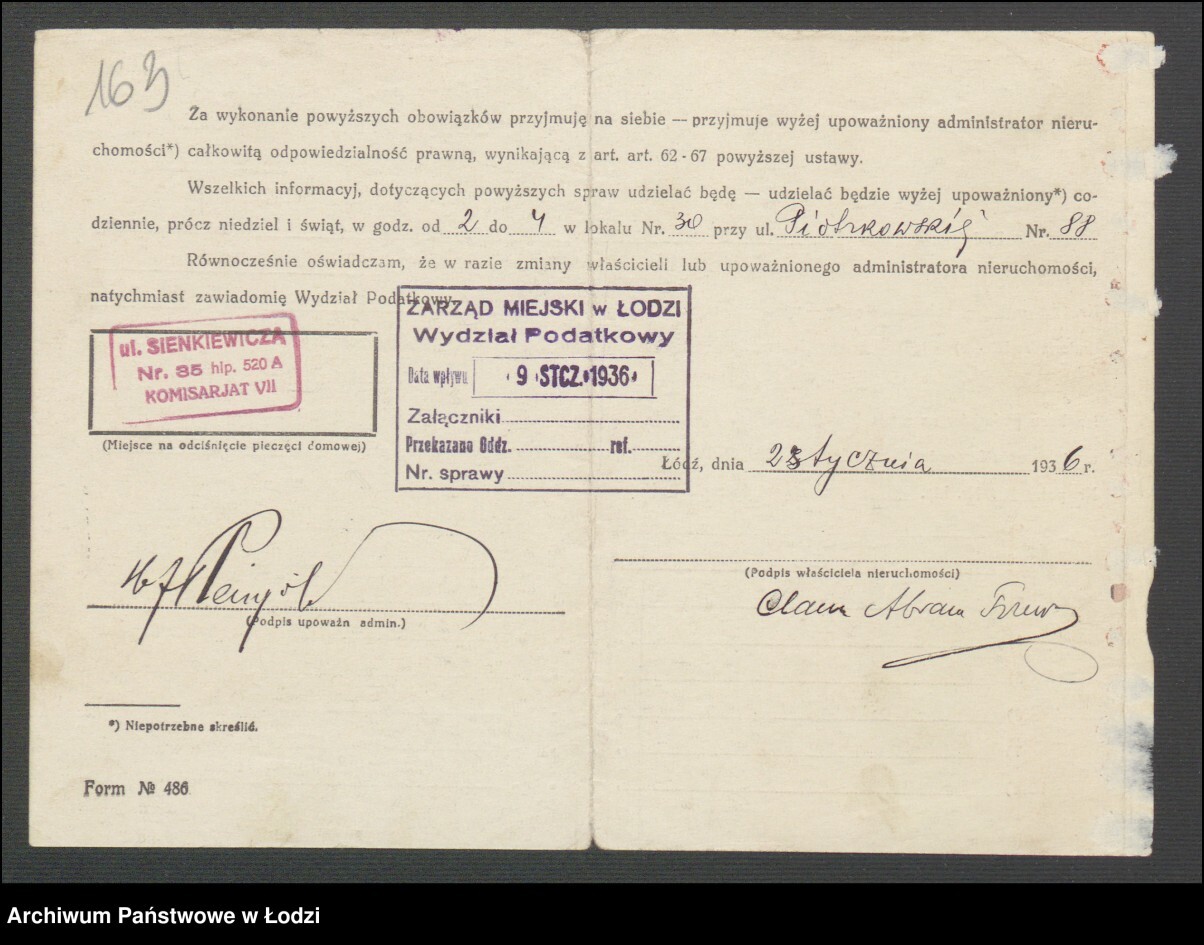 163
Za wykonanie powyższych obowiązków przyjmuję na siebie — przyjmuje wyżej upoważniony administrator nieru-
chomości*) całkowitą odpowiedzialność prawną, wynikającą z art. art. 62 - 67 powyższej ustawy.
Wszelkich informacyj, dotyczących powyższych spraw udzielać będę — udzielać będzie wyżej upoważniony*) co-
dziennie, prócz niedziel i świąt, w godz. od 2 do 4 w lokalu Nr. 30 przy ul. Piotrkowskiej Nr. 88
Równocześnie oświadczam, że w razie zmiany właścicieli lub upoważnionego administratora nieruchomości,
natychmiast zawiadomię Wydział Podatkowy.
ul. SIENKIEWICZA
Nr. 35 hip. 520 A
KOMISARJAT VII
(Miejsce na odciśnięcie pieczęci domowej)
ZARZĄD MIEJSKI w ŁODZI
Wydział Podatkowy
Data wpływu 9 STCZ. 1936
Załączniki
Przekazano Oddz. ref.
Nr. sprawy
Łódź, dnia 2 stycznia 1936 r.
(Podpis upoważn admin.)
(Podpis właściciela nieruchomości)
Abram
*) Niepotrzebne skreślić.
Form № 486
Archiwum Państwowe w Łodzi